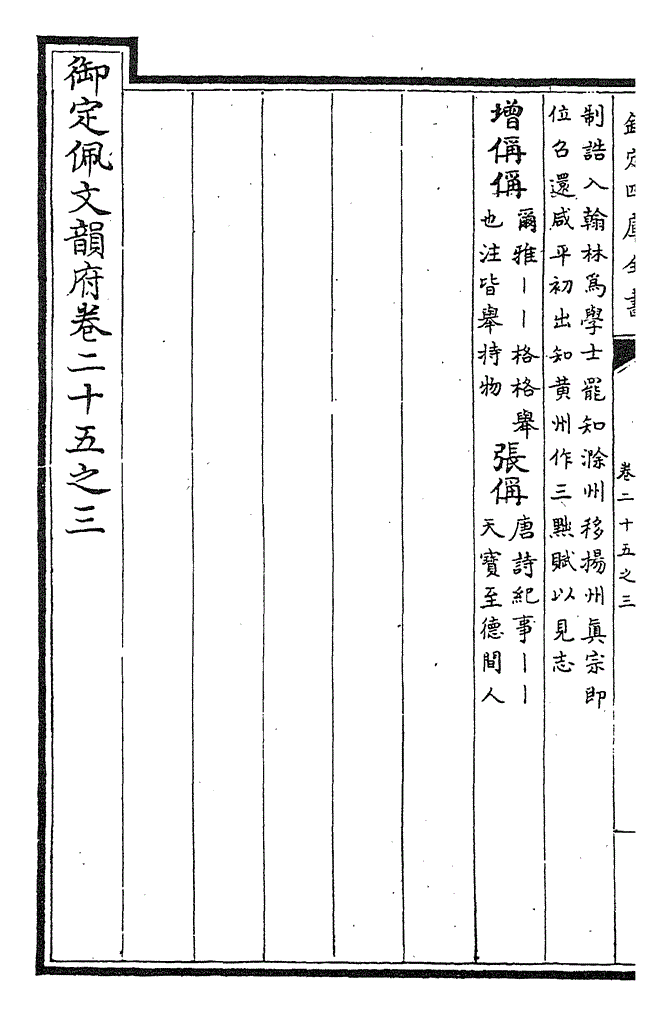 欽定四庫全書
卷二十五之三
制誥入翰林為學士罷知滁州移揚州真宗即
位召還咸平初出知黄州作三黜賦以見志
增偁偁
爾雅丨丨格格舉
也注皆舉持物
張偁
唐詩紀事丨丨
天寶至德間人
御定佩文韻府卷二十五之三